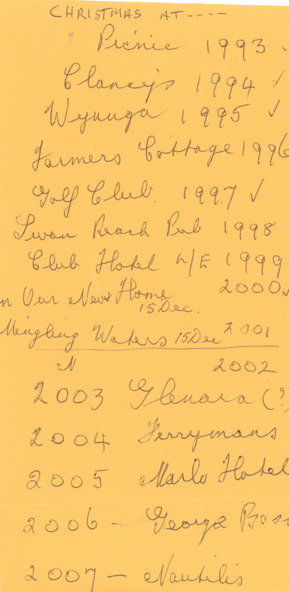 CHRISTMAS AT ----
Picnic 1993 .
Clancy's 1994 ✓
Wyunga 1995 ✓
Farmers Cottage 1996
Golf Club. 1997 ✓
Swan Reach Pub 1998
Club Hotel L/E 1999
n Our New Home 2000
15 Dec.
Mingling Waters 15 Dec 2001
" 2002
2003 Glenara (?
2004 Ferrymans
2005 Marlo Hotel
2006 - George Bass
2007 - Nautilis